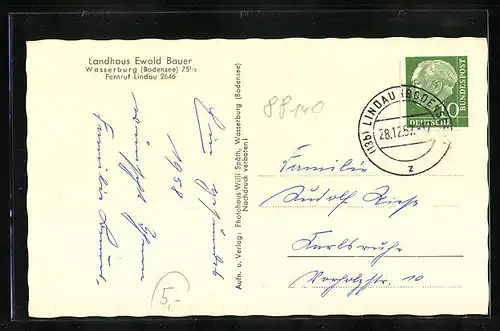 Landhaus Ewald Bauer
Wasserburg (Bodensee) 75½
Fernruf: Lindau 2646
1958
wünscht Ihnen
Familie
5,-
Aufn. u. Verlag: Photohaus Willi Späth, Wasserburg (Bodensee)
Nachdruck verboten!
88140
(13b) LINDAU (BODENSEE)
28.12.57
z
10
DEUTSCHE
BUNDESPOST
Familie
Rudolf
Karlsruhe
Vorholzstr. 10